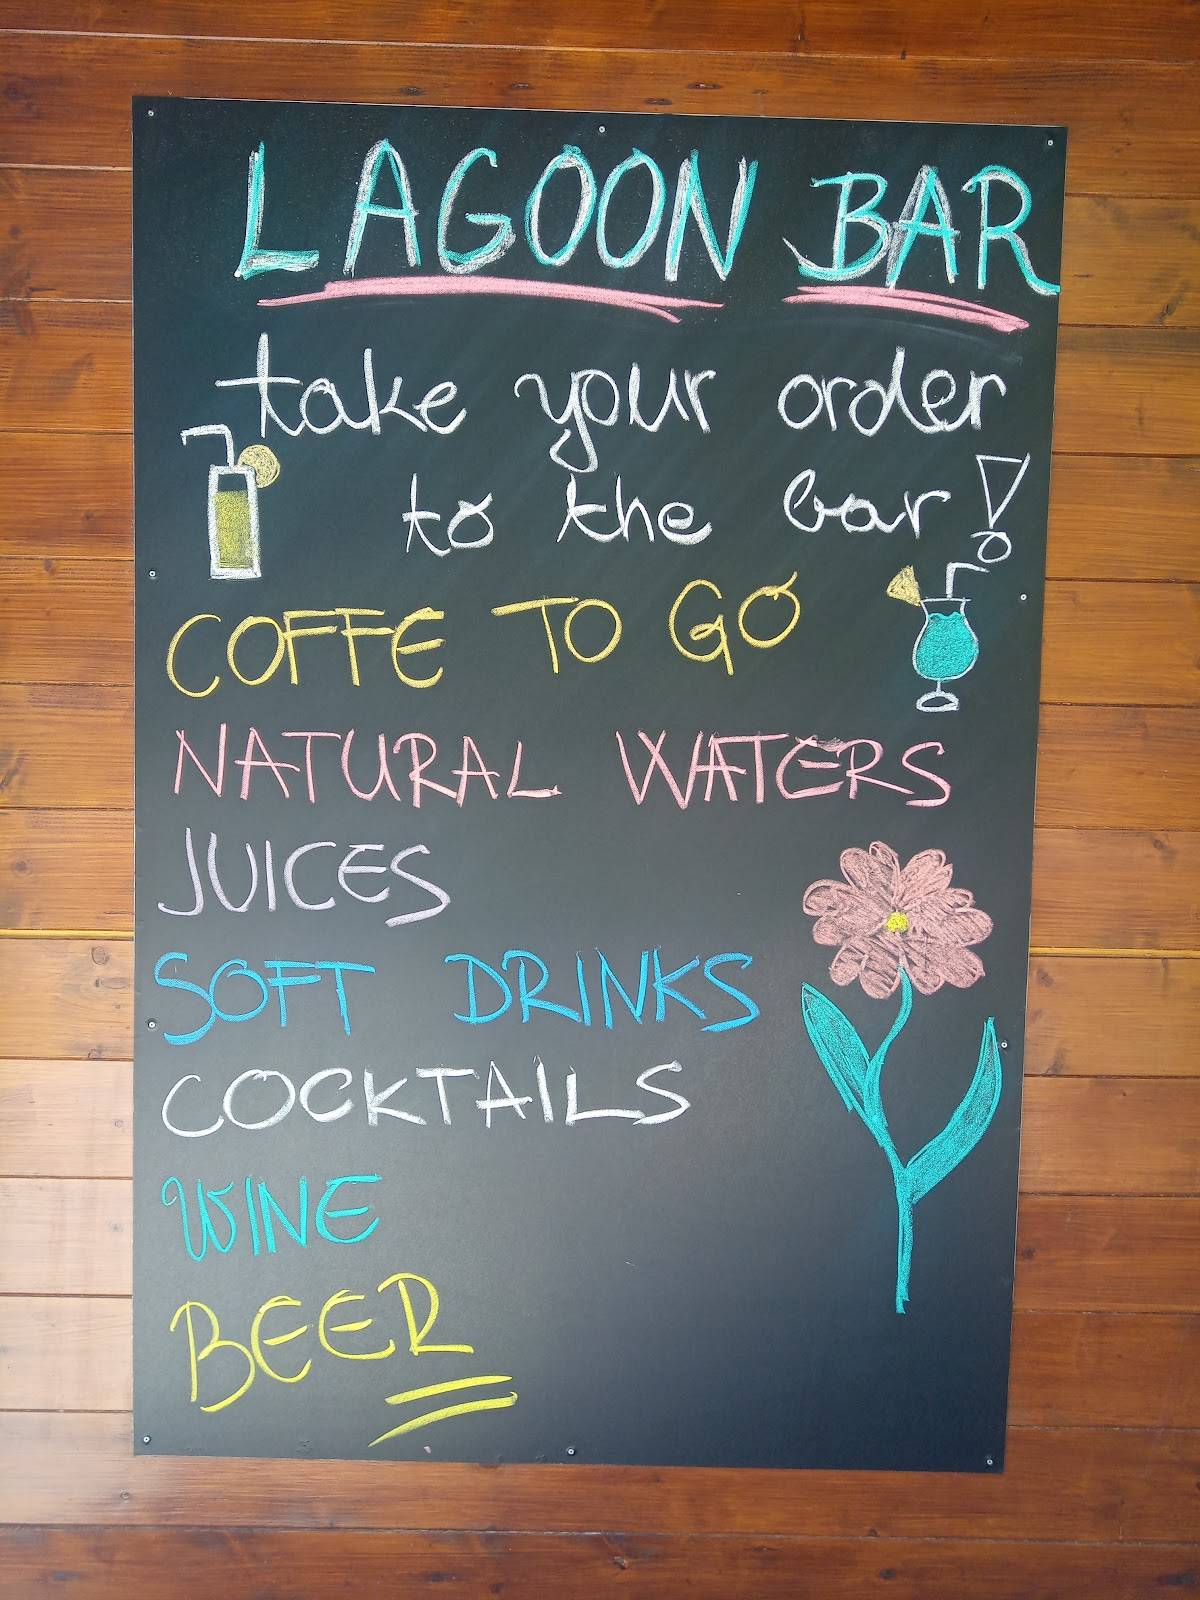 LAGOON BAR
take your order
to the bar!
COFFE TO GO
NATURAL WATERS
JUICES
SOFT DRINKS
COCKTAILS
WINE
BEER